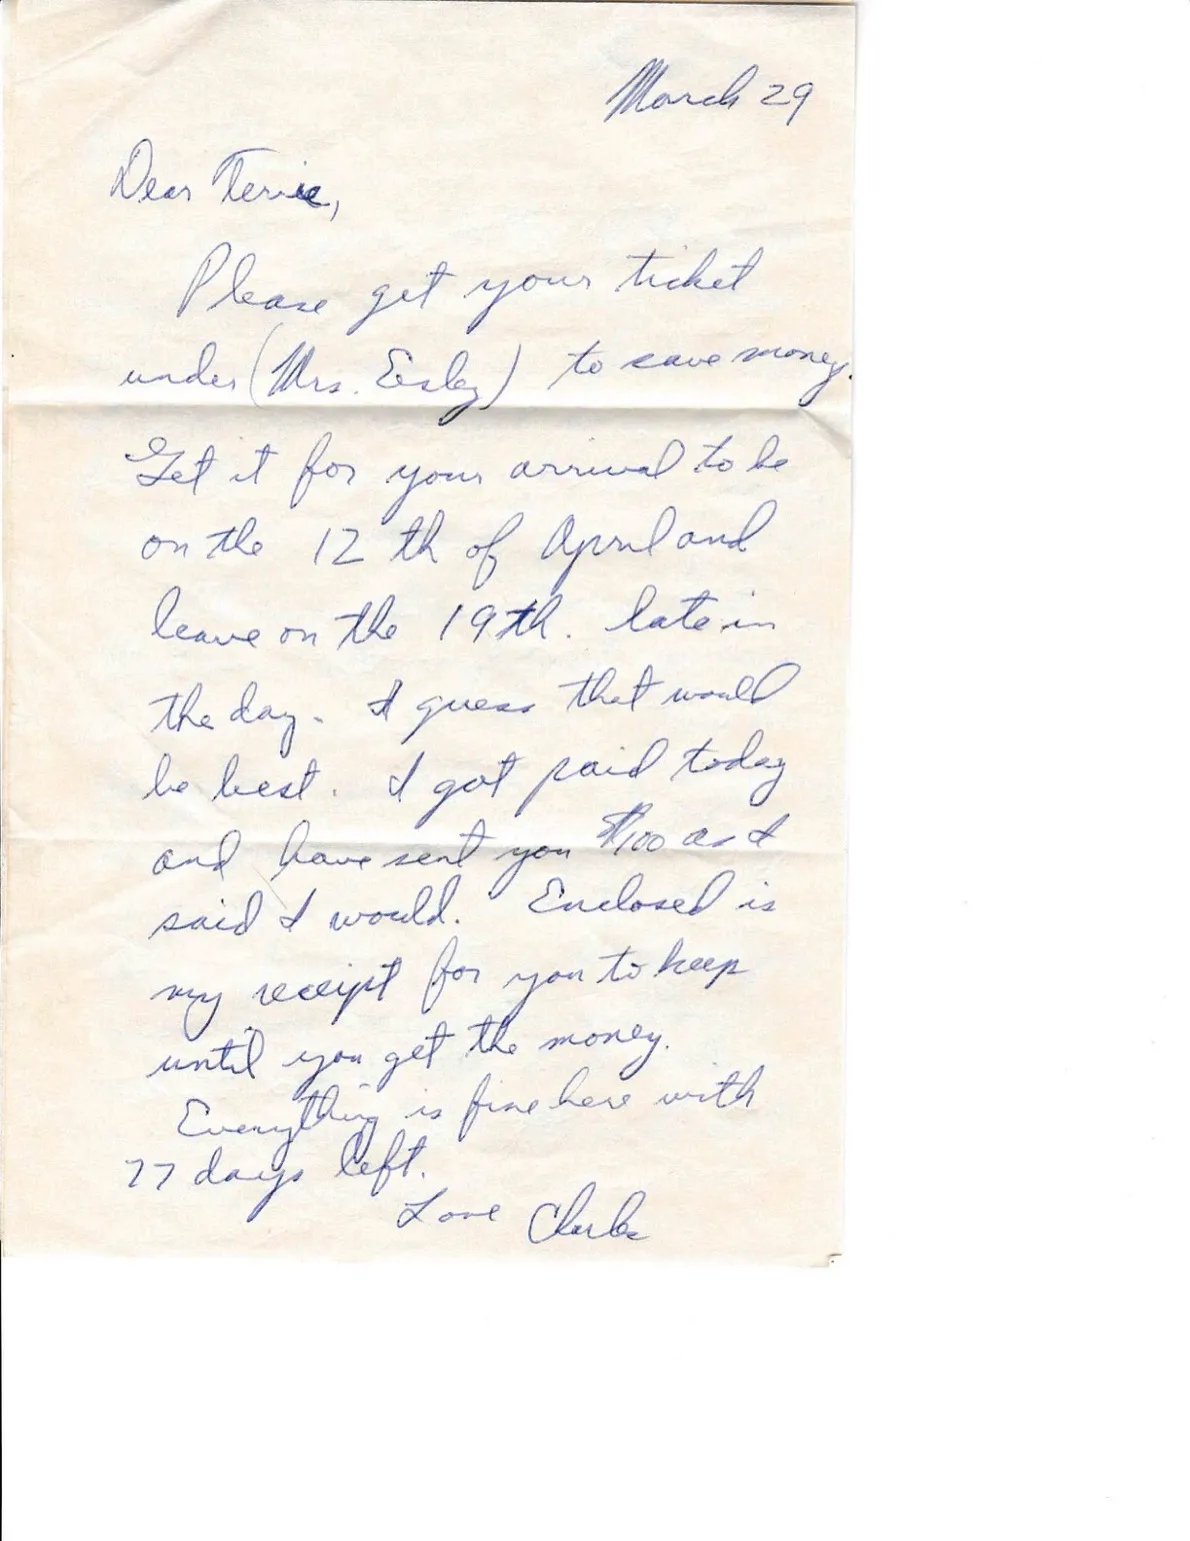 March 29
Dear Terrie,
Please get your ticket
under (Mrs. Easley) to save money.
Get it for your arrival to be
on the 12 th of April and
leave on the 19th. late in
the day. I guess that would
be best. I got paid today
and have sent you $100 as I
said I would. Enclosed is
my receipt for you to keep
until you get the money.
Everything is fine here with
77 days left.
Love Charles